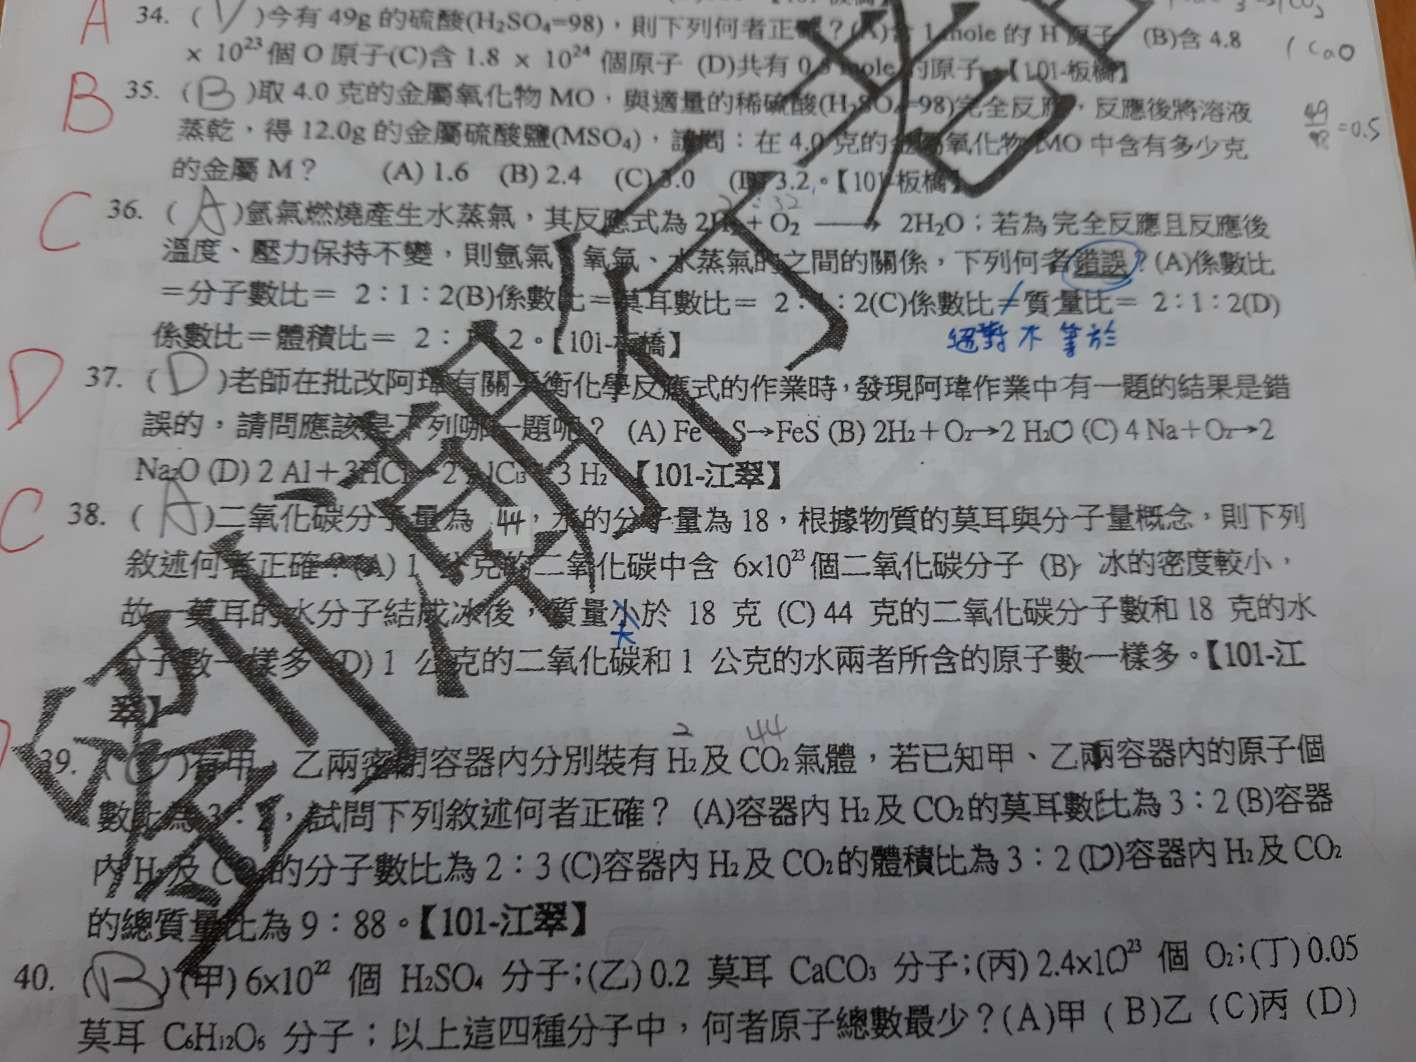 A
34. ( )今有 49g 的硫酸(H₂SO₄=98),則下列何者正確?(A)含 1 mole 的 H 原子 (B)含 4.8
1 CaO
× 10²³ 個 O 原子(C)含 1.8 × 10²⁴ 個原子 (D)共有 0.5 mole 的原子。【101-板橋】
B
35. (B)取 4.0 克的金屬氧化物 MO,與適量的稀硫酸(H₂SO₄=98)完全反應,反應後將溶液
49/98=0.5
蒸乾,得 12.0g 的金屬硫酸鹽(MSO₄),請問:在 4.0 克的金屬氧化物 MO 中含有多少克
的金屬 M? (A) 1.6 (B) 2.4 (C) 3.0 (D) 3.2。【101-板橋】
C
36. (A)氫氣燃燒產生水蒸氣,其反應式為 2H₂+O₂ ⟶ 2H₂O;若為完全反應且反應後
溫度、壓力保持不變,則氫氣、氧氣、水蒸氣的之間的關係,下列何者錯誤?(A)係數比
=分子數比= 2:1:2(B)係數比=莫耳數比= 2:1:2(C)係數比=質量比= 2:1:2(D)
係數比=體積比= 2:1:2。【101-板橋】
絕對不等於
D
37. (D)老師在批改阿瑋有關平衡化學反應式的作業時,發現阿瑋作業中有一題的結果是錯
誤的,請問應該是下列哪一題呢? (A) Fe+S→FeS (B) 2H₂+O₂→2 H₂O (C) 4 Na+O₂→2
Na₂O (D) 2 Al+3HCl→2 AlCl₃+3 H₂ 【101-江翠】
C
38. (A)二氧化碳分子量為 44,水的分子量為 18,根據物質的莫耳與分子量概念,則下列
敘述何者正確?(A) 1 公克的二氧化碳中含 6x10²³ 個二氧化碳分子 (B) 冰的密度較小,
故一莫耳的水分子結成冰後,質量小於 18 克 (C) 44 克的二氧化碳分子數和 18 克的水
大
分子數一樣多 (D) 1 公克的二氧化碳和 1 公克的水兩者所含的原子數一樣多。【101-江
翠】
2 44
39. ( )有甲、乙兩密閉容器內分別裝有 H₂ 及 CO₂ 氣體,若已知甲、乙兩容器內的原子個
數比為 3:2,試問下列敘述何者正確? (A)容器內 H₂ 及 CO₂ 的莫耳數比為 3:2 (B)容器
內 H₂ 及 CO₂ 的分子數比為 2:3 (C)容器內 H₂ 及 CO₂ 的體積比為 3:2 (D)容器內 H₂ 及 CO₂
的總質量比為 9:88。【101-江翠】
40. (B) (甲) 6x10²² 個 H₂SO₄ 分子;(乙) 0.2 莫耳 CaCO₃ 分子;(丙) 2.4x10²³ 個 O₂;(丁) 0.05
莫耳 C₆H₁₂O₆ 分子;以上這四種分子中,何者原子總數最少?(A)甲 (B)乙 (C)丙 (D)